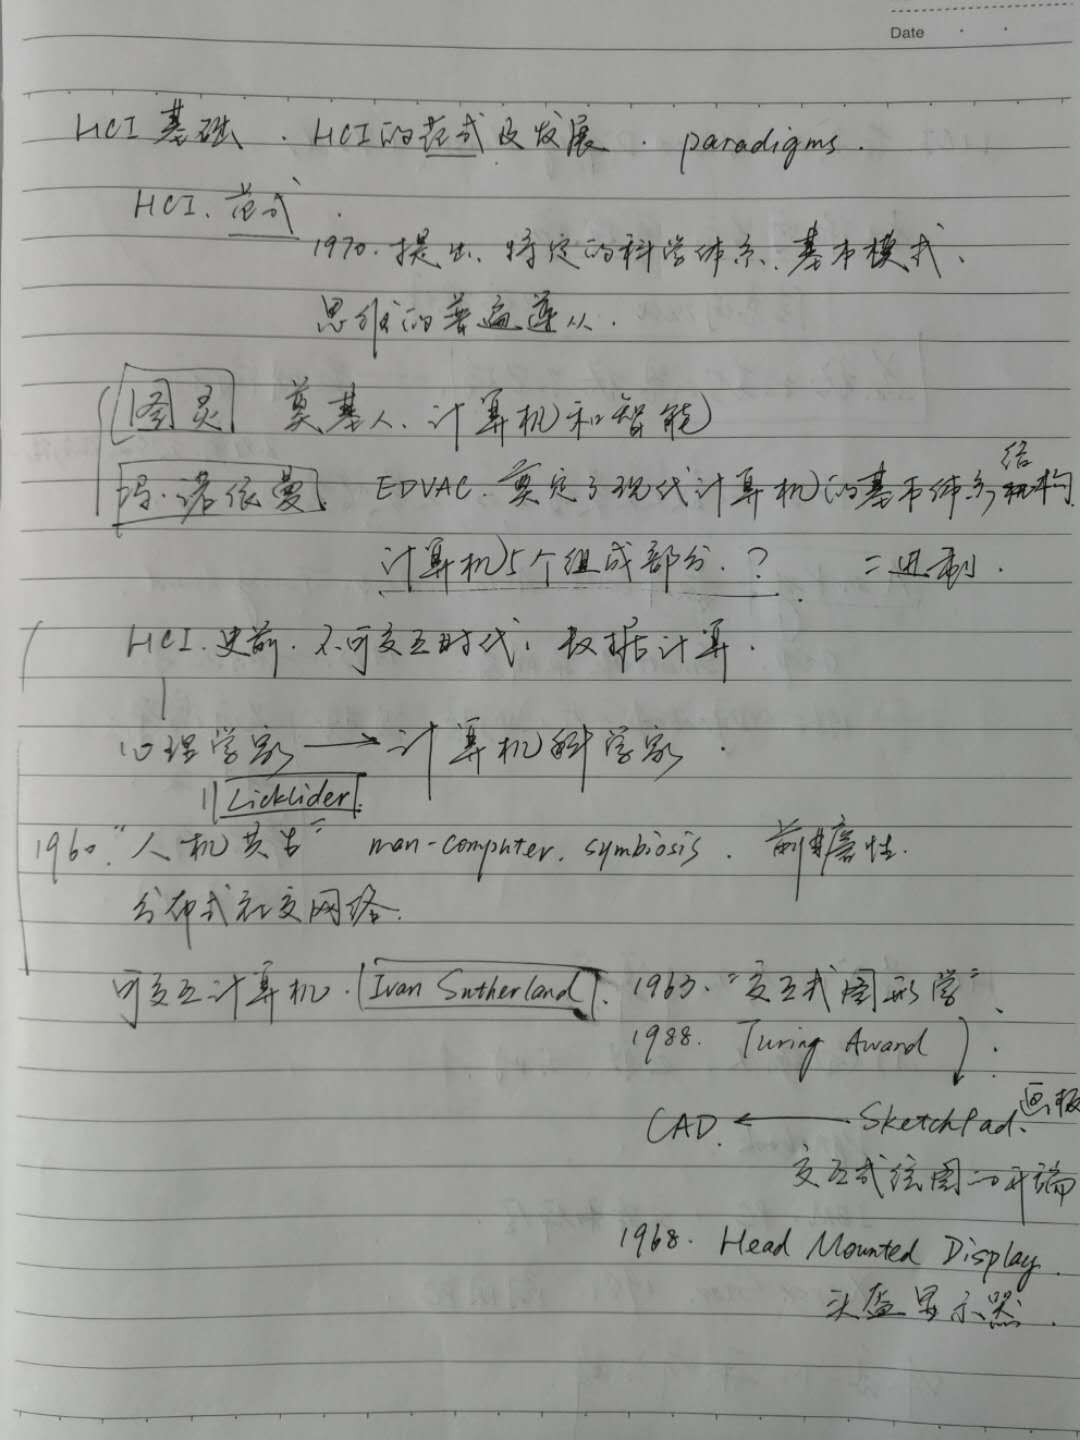 Date
HCI 基础. HCI的范式及发展. paradigms.
HCI. 范式.
1970. 提出、特定的科学体系、基本模式、
思维的普遍遵从.
图灵 奠基人、计算机和智能
冯·诺依曼 EDVAC. 奠定了现代计算机的基本体系结构
计算机5个组成部分.? 二进制.
HCI. 史前. 不可交互时代: 数据计算.
心理学家 → 计算机科学家.
Licklider.
1960. "人机共生" man-computer. symbiosis. 前瞻性.
分布式社交网络.
可交互计算机. Ivan Sutherland. 1963. "交互式图形学"、
1988. Turing Award.
CAD. ← SketchPad、画板
交互式绘图的开端
1968. Head Mounted Display.
头盔显示器.